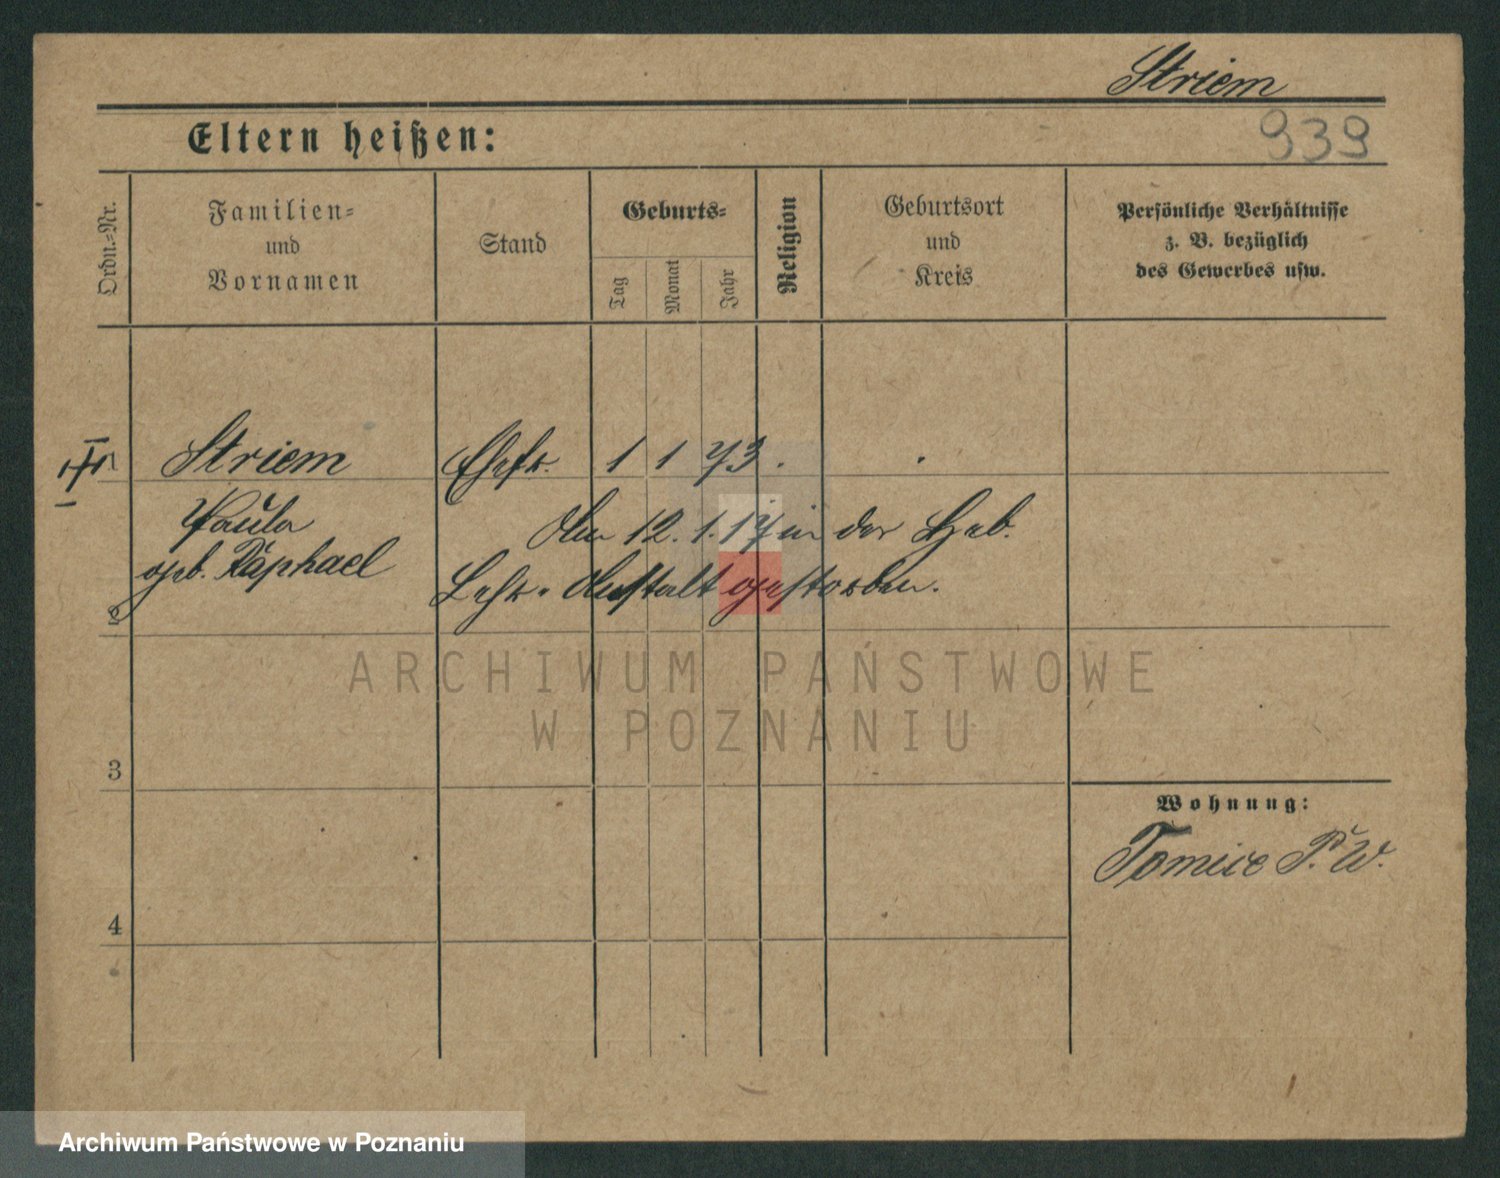 Striem
Eltern heißen:
939
Ordn.-Nr.
Familien-
und
Vornamen
Stand
Geburts-
Tag
Monat
Jahr
Religion
Geburtsort
und
Kreis
Persönliche Verhältnisse
z. B. bezüglich
des Gewerbes usw.
1
Striem
Ehefr.
1 1 73.
Paula
Am 12. 1. 17 in der Heb.
geb. Raphael
Lehr-Anstalt gestorben.
2
ARCHIWUM PAŃSTWOWE
W POZNANIU
3
Wohnung:
Tomice P. W.
4
Archiwum Państwowe w Poznaniu